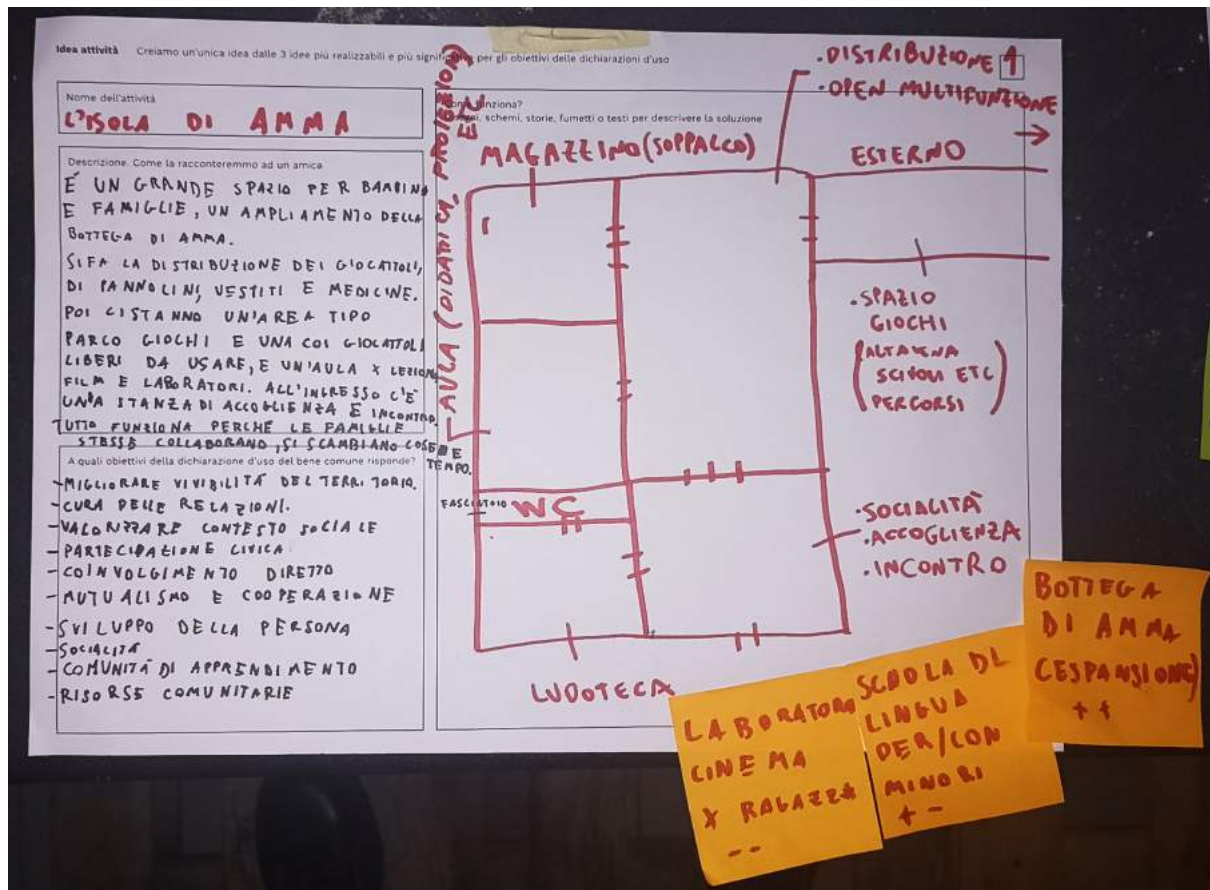 Idea attività Creiamo un'unica idea dalle 3 idee più realizzabili e più per gli obiettivi delle dichiarazioni d'uso
Nome dell'attività
L'ISOLA DI AMMA
Descrizione. Come la racconteremmo ad un amica
É UN GRANDE SPAZIO PER BAMBIN*
E FAMIGLIE, UN AMPLIAMENTO DELLA
BOTTEGA DI AMMA.
SI FA LA DISTRIBUZIONE DEI GIOCATTOLI,
DI PANNOLINI, VESTITI E MEDICINE.
POI CI STANNO UN'AREA TIPO
PARCO GIOCHI E UNA COI GIOCATTOLI
LIBERI DA USARE, E UN'AULA X LEZIONI,
FILM E LABORATORI. ALL'INGRESSO C'È
UNA STANZA DI ACCOGLIENZA E INCONTRO.
TUTTO FUNZIONA PERCHÉ LE FAMIGLIE
STESSE COLLABORANO, SI SCAMBIANO COSE E
TEMPO.
A quali obiettivi della dichiarazione d'uso del bene comune risponde?
-MIGLIORARE VIVIBILITÁ DEL TERRITORIO.
-CURA DELLE RELAZIONI.
-VALORIZZARE CONTESTO SOCIALE
-PARTECIPAZIONE CIVICA
-COINVOLGIMENTO DIRETTO
-MUTUALISMO E COOPERAZIONE
-SVILUPPO DELLA PERSONA
-SOCIALITÁ
-COMUNITÁ DI APPRENDIMENTO
-RISORSE COMUNITARIE
funziona?
schemi, storie, fumetti o testi per descrivere la soluzione
1
.DISTRIBUZIONE
.OPEN MULTIFUNZIONE
MAGAZZINO (SOPPALCO)
ESTERNO
AULA (DIDATTICA, PROIEZIONI
ETC
.SPAZIO
GIOCHI
(ALTALENA
SCIVOLI ETC
PERCORSI)
FASCIATOIO
WC
.SOCIALITÀ
.ACCOGLIENZA
.INCONTRO
LUDOTECA
LABORATORIO
CINEMA
X RAGAZZ*
--
SCUOLA DI
LINGUA
PER/CON
MINORI
+ -
BOTTEGA
DI AMMA
(ESPANSIONE)
++